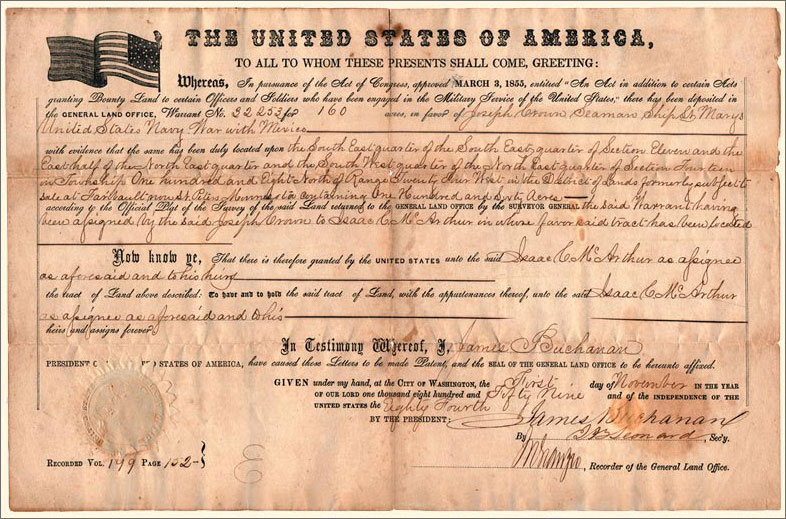 THE UNITED STATES OF AMERICA,
TO ALL TO WHOM THESE PRESENTS SHALL COME, GREETING:
Whereas, In pursuance of the Act of Congress, approved MARCH 3, 1855, entitled "An Act in addition to certain Acts
granting Bounty Land to certain Officers and Soldiers who have been engaged in the Military Service of the United States," there has been deposited in
the GENERAL LAND OFFICE, Warrant No. 32253 for 160 acres, in favor of Joseph Crown Seaman Ship St. Mary's
United States Navy War with Mexico
with evidence that the same has been duly located upon the South East quarter of the South East quarter of Section Eleven and the
East half of the North East quarter and the South West quarter of the North East quarter of Section Fourteen
in Township One hundred and Eight North of Range Twenty four West in the District of Lands formerly subject to
sale at Faribault now St. Peter Minnesota containing One Hundred and Sixty Acres
according to the Official Plat of the Survey of the said Land returned to the GENERAL LAND OFFICE by the SURVEYOR GENERAL the said Warrant having
been assigned by the said Joseph Crown to Isaac C McArthur in whose favor said tract has been located
Now know ye, That there is therefore granted by the UNITED STATES unto the said Isaac C McArthur as assignee
as aforesaid and to his heirs
the tract of Land above described: To have and to hold the said tract of Land, with the appurtenances thereof, unto the said Isaac C McArthur
as assignee as aforesaid and to his
heirs and assigns forever.
In Testimony Whereof, I, James Buchanan
PRESIDENT OF THE UNITED STATES OF AMERICA, have caused these Letters to be made Patent, and the SEAL OF THE GENERAL LAND OFFICE to be hereunto affixed.
GIVEN under my hand, at the CITY OF WASHINGTON, the First day of November IN THE YEAR
OF OUR LORD one thousand eight hundred and Fifty Nine and of the INDEPENDENCE OF THE
UNITED STATES the Eighty Fourth
BY THE PRESIDENT: James Buchanan
By Leonard, Sec'y.
RECORDED VOL. 149 PAGE 132
, Recorder of the General Land Office.